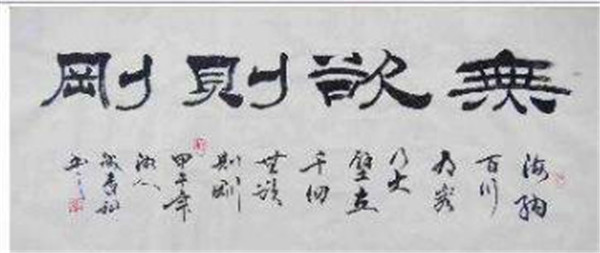 無欲則剛
海納
百川
有容
乃大
壁立
千仞
無欲
則剛
甲午年